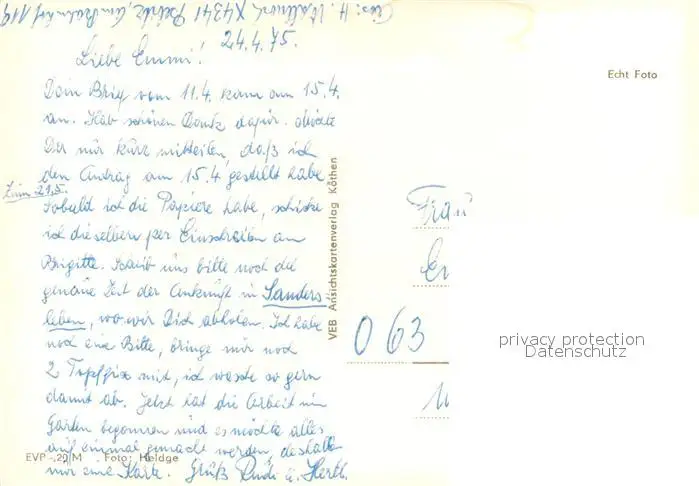 Abs: H. Wallwork, X4341 Belitz, Am Bahnhof 119
24.4.75.
Liebe Emmi!
Dein Brief vom 11.4. kam am 15.4.
an. Hab schönen Dank dafür. Möchte
Dir nur kurz mitteilen, daß ich
den Antrag am 15.4 gestellt habe
zum 21.5.
Sobald ich die Papiere habe, schicke
ich dieselben per Einschreiben an
Brigitte. Schreib uns bitte noch die
genaue Zeit der Ankunft in Sanders-
leben, wo wir Dich abholen. Ich habe
noch eine Bitte, bringe mir noch
2 Topffix mit, ich wasche so gern
damit ab. Jetzt hat die Arbeit im
Garten begonnen und es möchte alles
auf einmal gemacht werden, deshalb
nur eine Karte. Gruß Rudi u. Hertl.
EVP -,20 M Foto: Heldge
VEB Ansichtskartenverlag Köthen
Echt Foto
Frau
063
privacy protection
Datenschutz